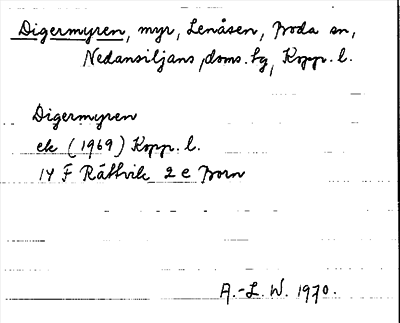 Digermyren, myr, Lenåsen, Boda sn,
Nedansiljans doms. hg, Kopp. l.
Digermyren
ek (1969) Kopp. l.
14 F Rättvik 2 e Born
A.-L. W. 1970.